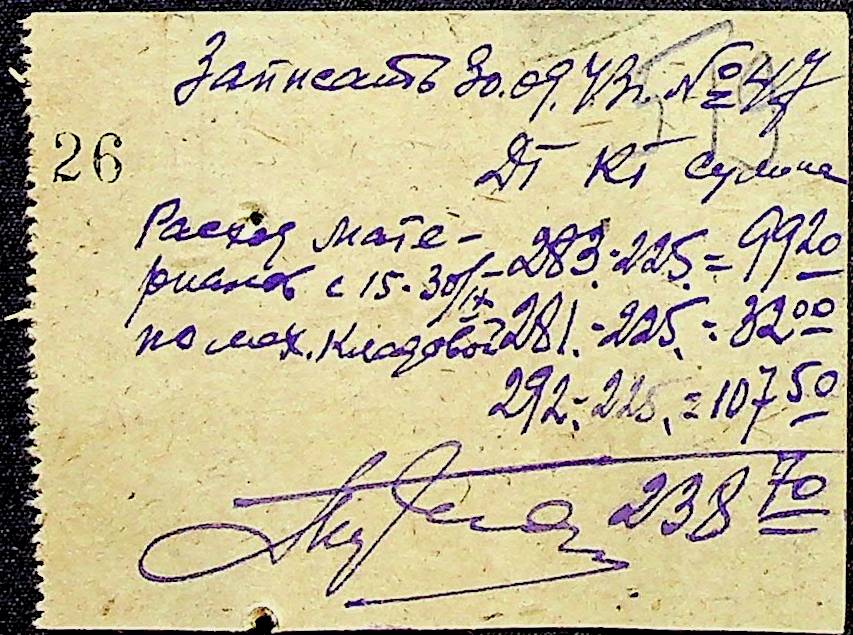 Записать 30.09.73г. № 47
26
Дт Кт сумма
Расход мате- 283-225 = 99 20
риалов с 15-30/IX 281-225 = 32 00
по мех. кладовой 292-225 = 107 50
238 70